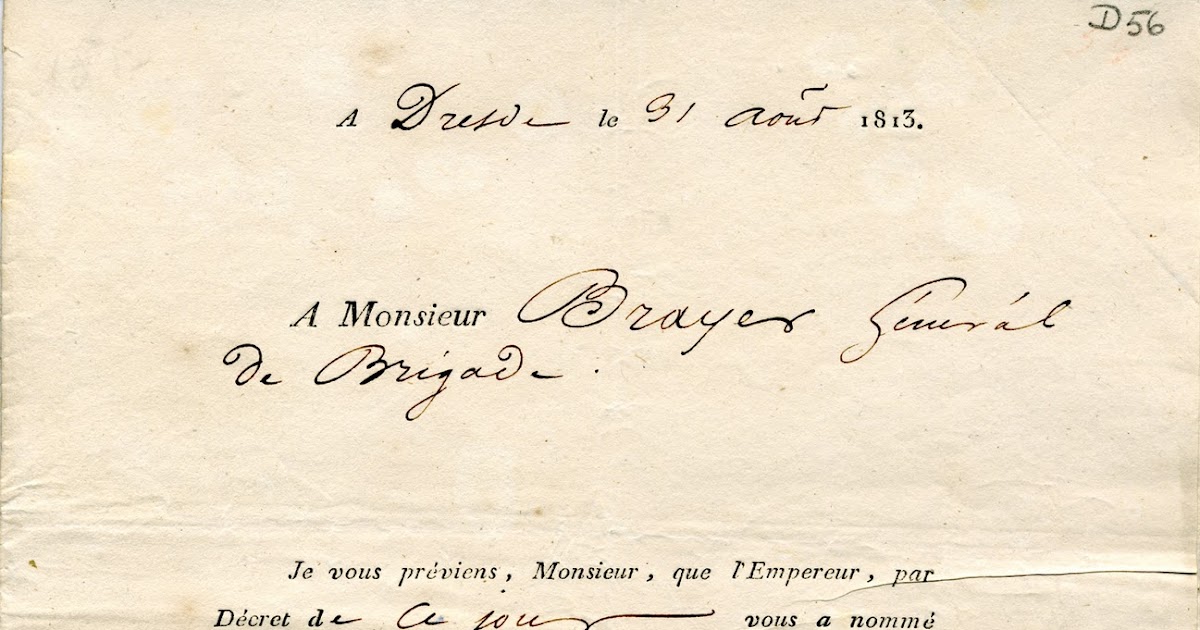 D56
A Dresde le 31 août 1813.
A Monsieur Brayer Général
de Brigade.
Je vous préviens, Monsieur, que l'Empereur, par
Décret de Ce jour vous a nommé